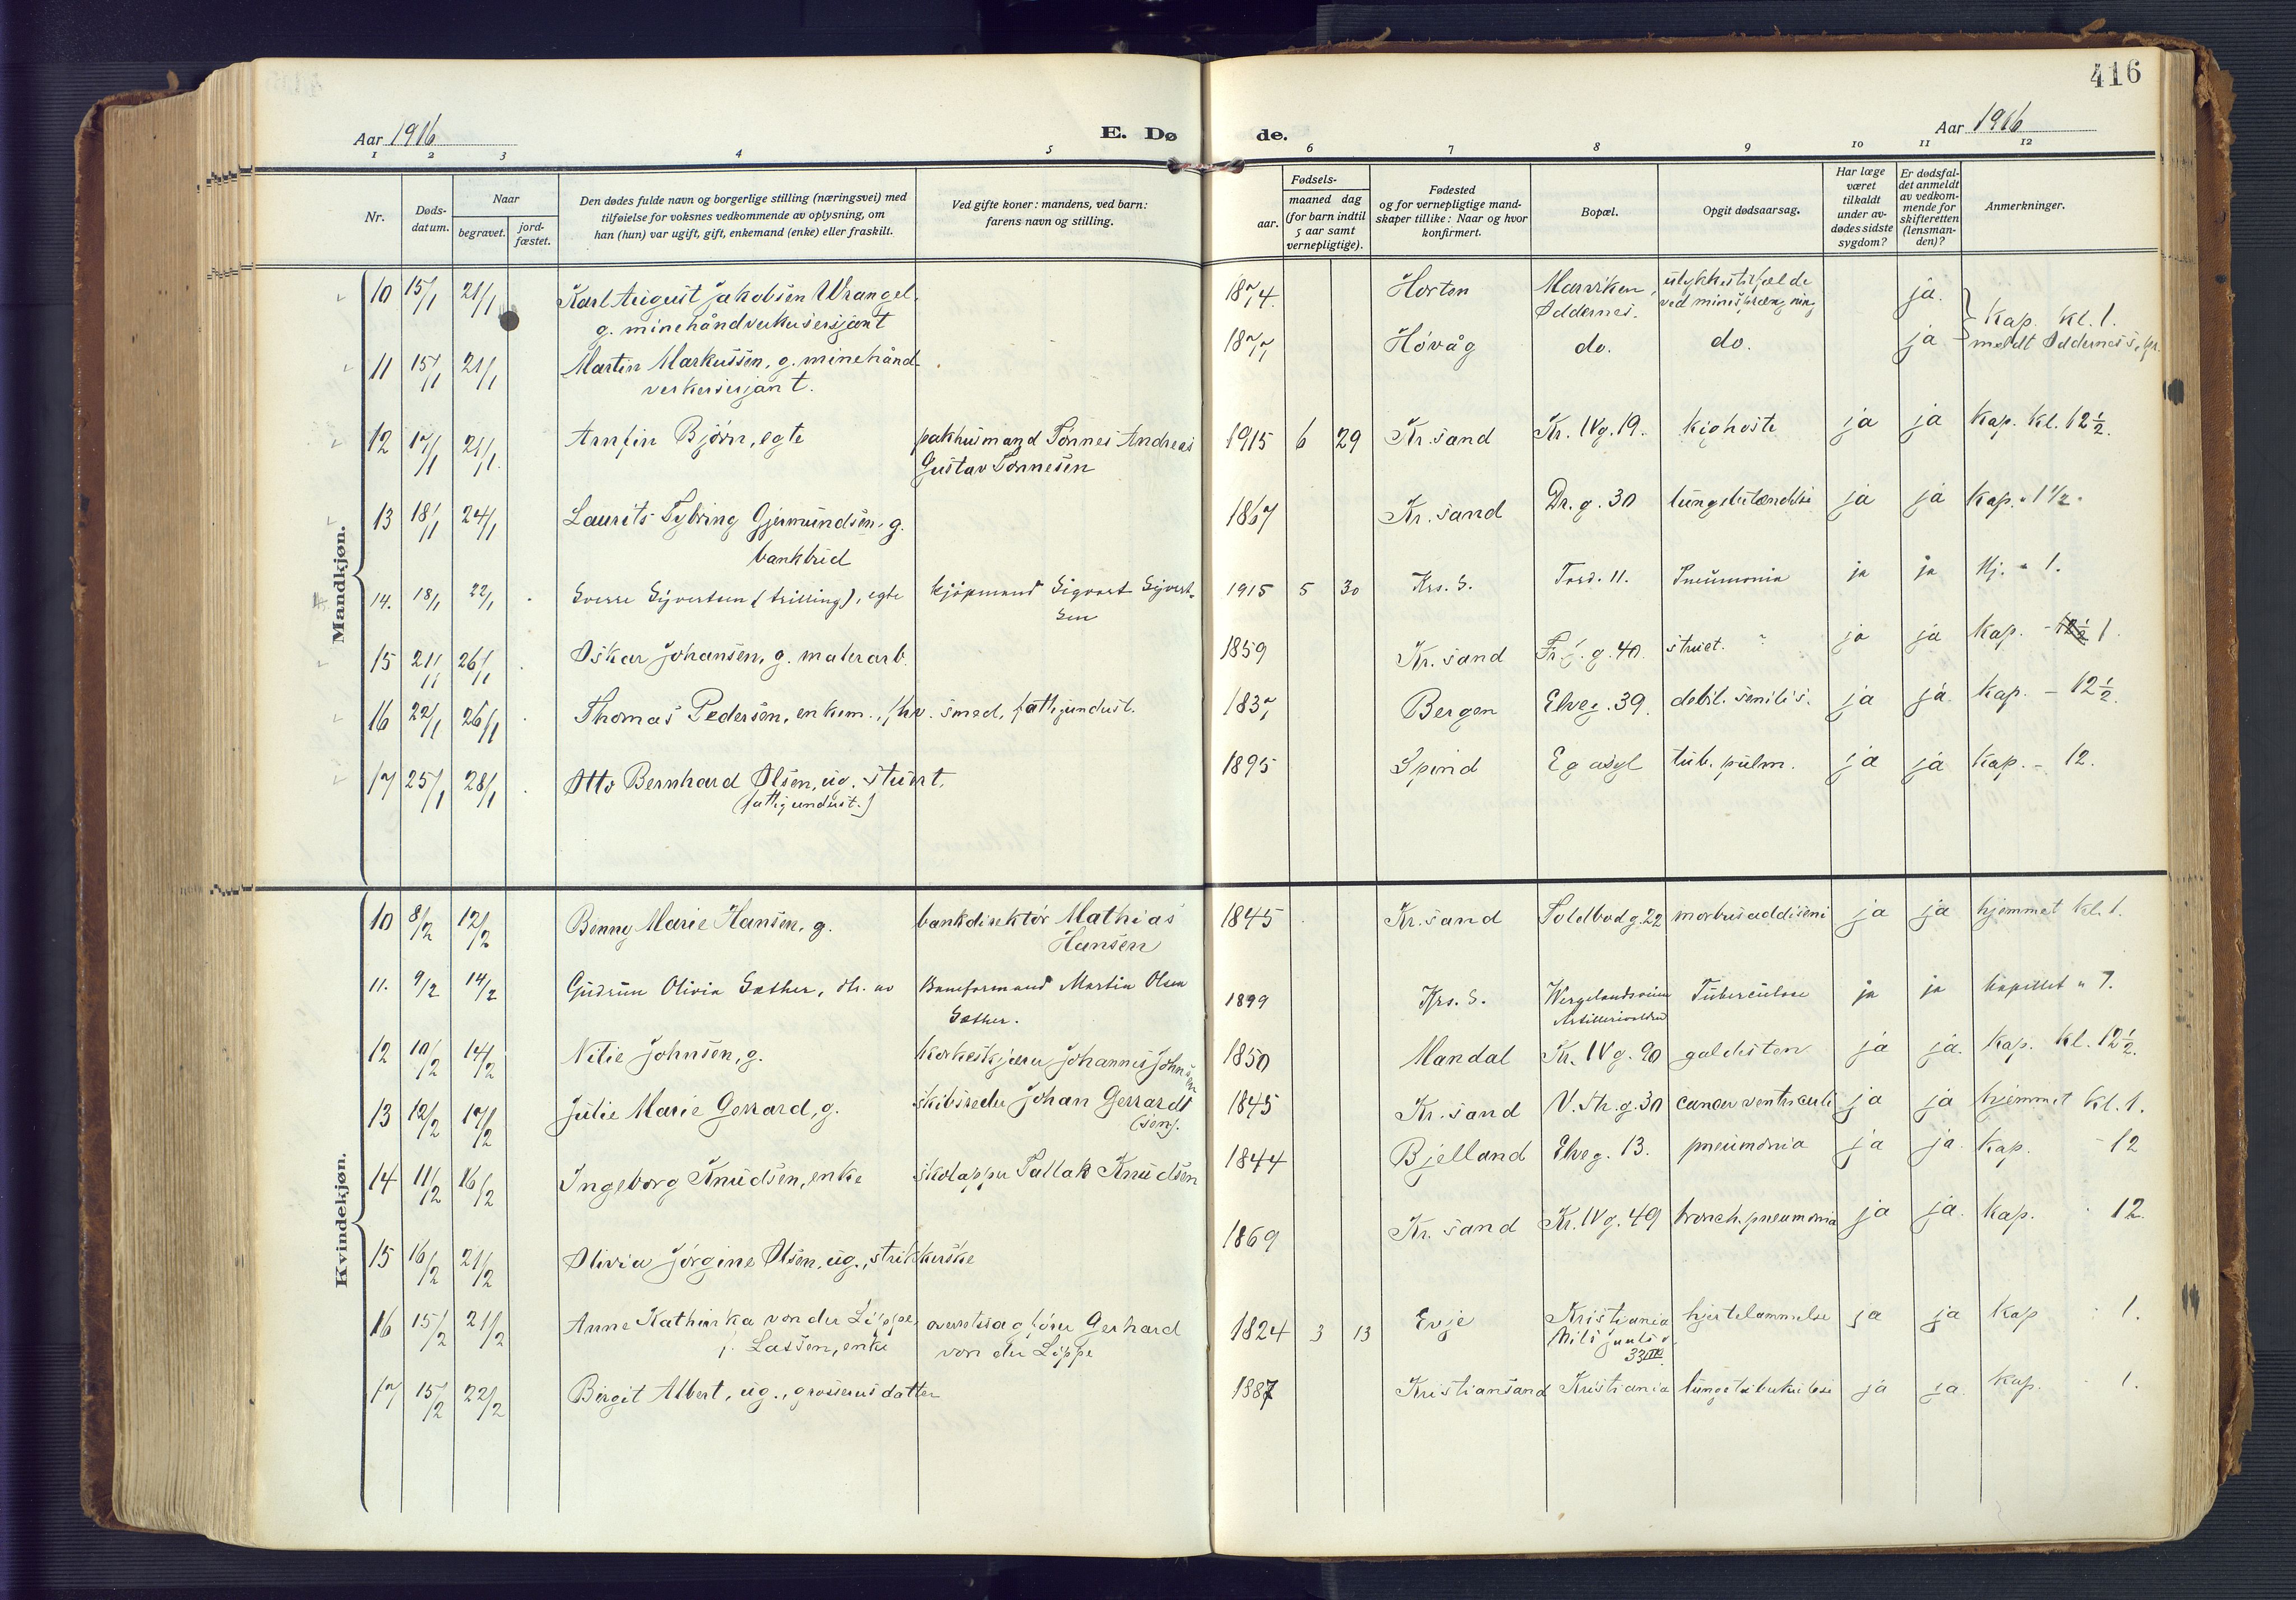 416
Aar 1916 E. Dø de. Aar 1916
1 2 3 4 5 6 7 8 9 10 11 12
Nr.
Døds-
datum.
Naar
begravet.
jord-
fæstet.
Den dødes fulde navn og borgerlige stilling (næringsvei) med
tilføielse for voksnes vedkommende av oplysning, om
han (hun) var ugift, gift, enkemand (enke) eller fraskilt.
Ved gifte koner: mandens, ved barn:
farens navn og stilling.
Fødsels-
aar.
maaned dag
(for barn indtil
5 aar samt
vernepligtige).
Fødested
og for vernepligtige mand-
skaper tillike: Naar og hvor
konfirmert.
Bopæl.
Opgit dødsaarsag.
Har læge
været
tilkaldt
under av-
dødes sidste
sygdom?
Er dødsfal-
det anmeldt
av vedkom-
mende for
skifteretten
(lensman-
den)?
Anmerkninger.
Mandkjøn.
10 15/1 21/1 Karl August Jakobsen Wrangel, 1874. Horten Marviken, ulykkestilfælde ja.
g. minehåndverkersersjant Oddernes. ved minesprængning Kap. kl. 1.
11 15/1 21/1 Martin Markussen, g. minehånd- 1877 Høvåg do. do. ja meldt Oddernes s.pr.
verkersersjant.
12 17/1 21/1 Arnfin Bjørn, egte pakhusmand Tønnes Andreas 1915 6 29 Kr.sand Kr. IVg. 19. kighoste ja ja Kap. kl. 12½.
Gustav Tønnesen
13 18/1 24/1 Laurits Tybring Gjermundsen, g. 1867 Kr.sand Dr. g. 30 lungebetændelse ja ja Kap. " 1½.
bankbud
14. 18/1 22/1 Sverre Sijvertsen (trilling), egte kjøpmand Sigvart Sijvert- 1915 5 30 Krs. S. Tord. 11. Pneumonia ja ja Hj. " 1.
sen
15 21/1 26/1 Oskar Johansen, g. malerarb. 1859 Kr.sand g. 40. struct. ja ja Kap. - 12½ 1.
16 22/1 26/1 Thomas Pedersen, enkem., fhv. smed, fattigunderst. 1837 Bergen Elveg. 39. debil. senilis. ja ja. Kap. - 12½.
17 25/1 28/1 Otto Bernhard Olsen, ug. stuert, 1895 Spind Eg asyl tub. pulm. ja ja Kap. - 12.
(fattigunderst.)
Kvindekjøn.
10 8/2 12/2 Benny Marie Hansen, g. bankdirektør Mathias 1845 Kr.sand Toldbodg. 22 morbus addisoni ja ja hjemmet kl. 1.
Hansen
11. 9/2 14/2 Gudrun Olivia Sæther, dtr. av Baneformand Martin Olsen 1899 Krs. S. Tuberculose ja ja kapellet " 1.
Sæther.
12 10/2 14/2 Netie Johnsen, g. korkeskjærer Johannes Johnsen 1850 Mandal Kr. IVg. 90 galdesten ja ja. Kap. kl. 12½.
13 12/2 17/2 Julie Marie Gerrard, g. skibsreder Johan Gerrardt 1845 Kr.sand V. Str. g. 30 cancer ventriculi ja ja hjemmet kl. 1.
(sen).
14 11/2 16/2 Ingeborg Knudsen, enke skolapper Tallak Knudsen 1844 Bjelland Elveg. 13. pneumonia ja ja. Kap. - 12
15 16/2 21/2 Olivia Jørgine Olsen, ug., strikkerske 1869 Kr.sand Kr. IVg. 49 bronch. pneumonia ja ja. Kap. 12.
16 15/2 21/2 Anne Kathinka von der Lippe, overretssagfører Gerhard 1824 3 13 Evje Kristiania hjertelammelse ja ja Kap 1.
f. Lassen, enke von der Lippe Nils Juuls g.
33 III
17 15/2 22/2 Birgit Albert, ug., grosserersdatter 1887 Kristiansand Kristiania lungetuberkulose ja ja. Kap. 1.